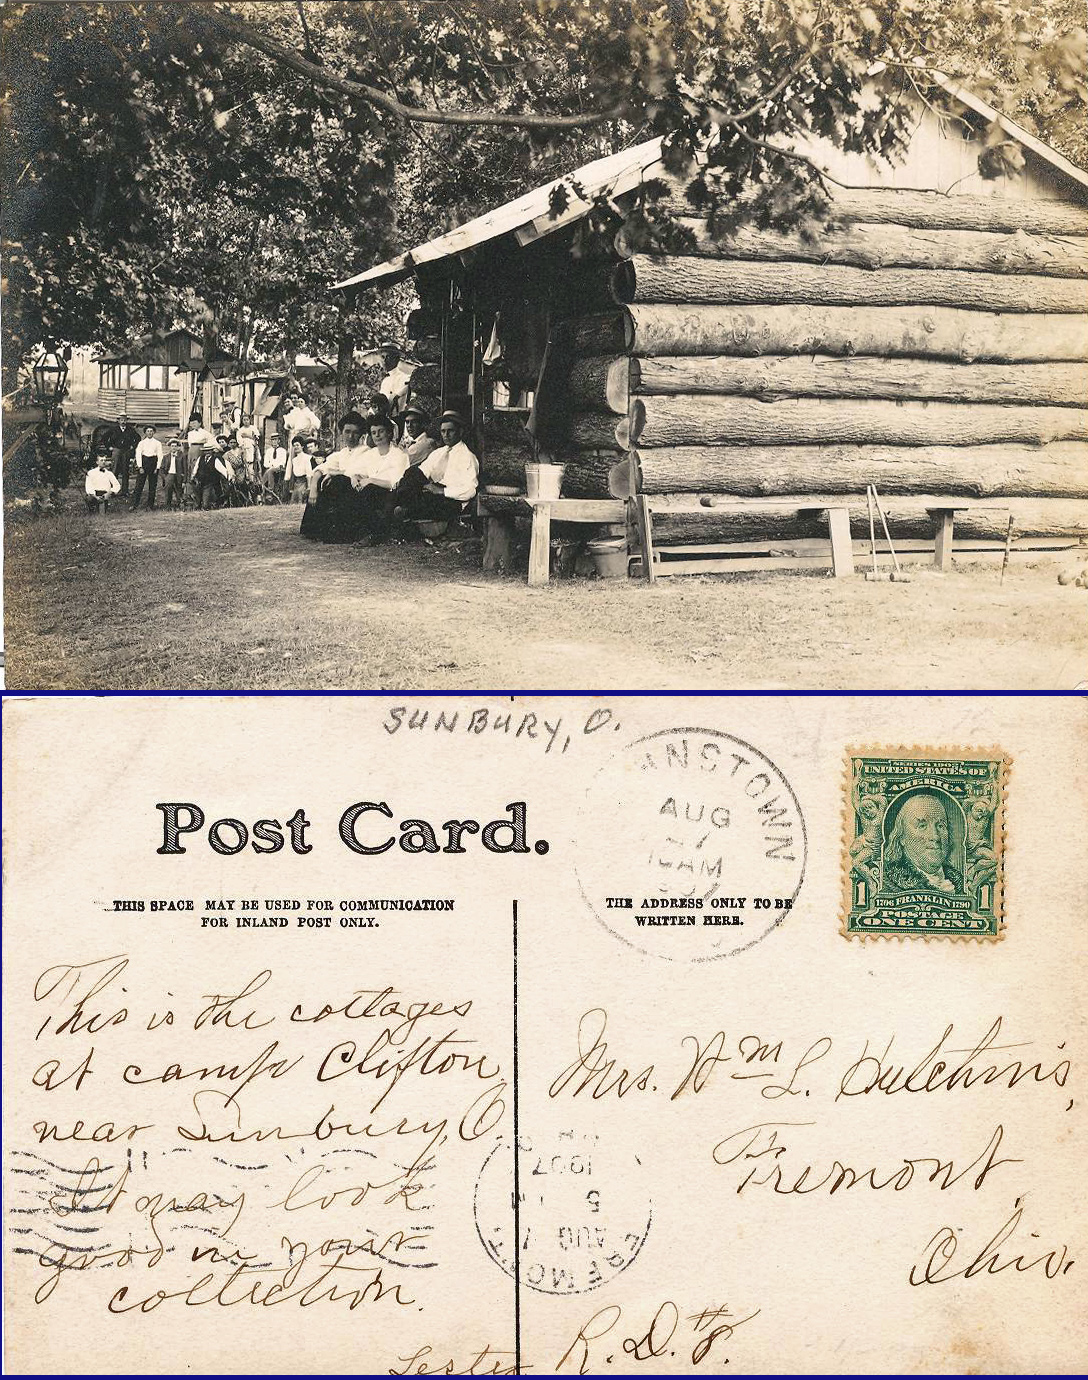 SUNBURY, O.
ANSTOWN
AUG
7
10AM
Post Card.
THIS SPACE MAY BE USED FOR COMMUNICATION
FOR INLAND POST ONLY.
THE ADDRESS ONLY TO BE
WRITTEN HERE.
SERIES 1902
UNITED STATES OF
AMERICA
1 1
1706 FRANKLIN 1790
POSTAGE
ONE CENT
This is the cottages
at camp Clifton
near Sunbury, O.
It may look
good in your
collection.
Lester
Mrs. Wm L. Hutchins,
Fremont,
Ohio.
R.D.#8.
FREMONT
AUG
5
1907